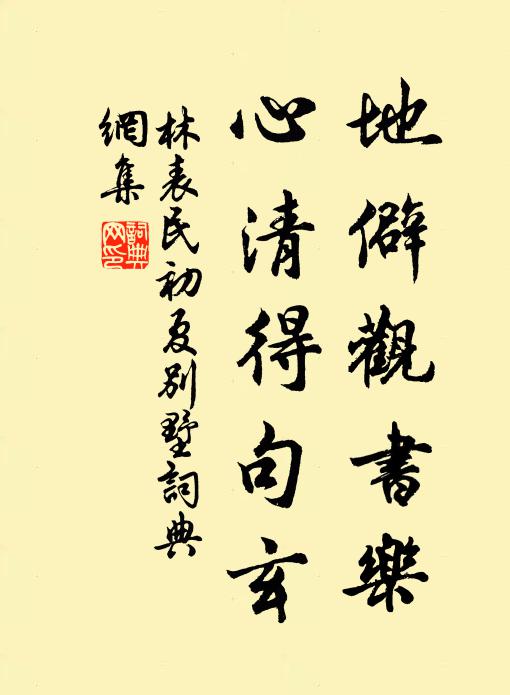 地僻觀書樂
心清得句玄
林表民初夏別墅詞典
網集
詞典
网印